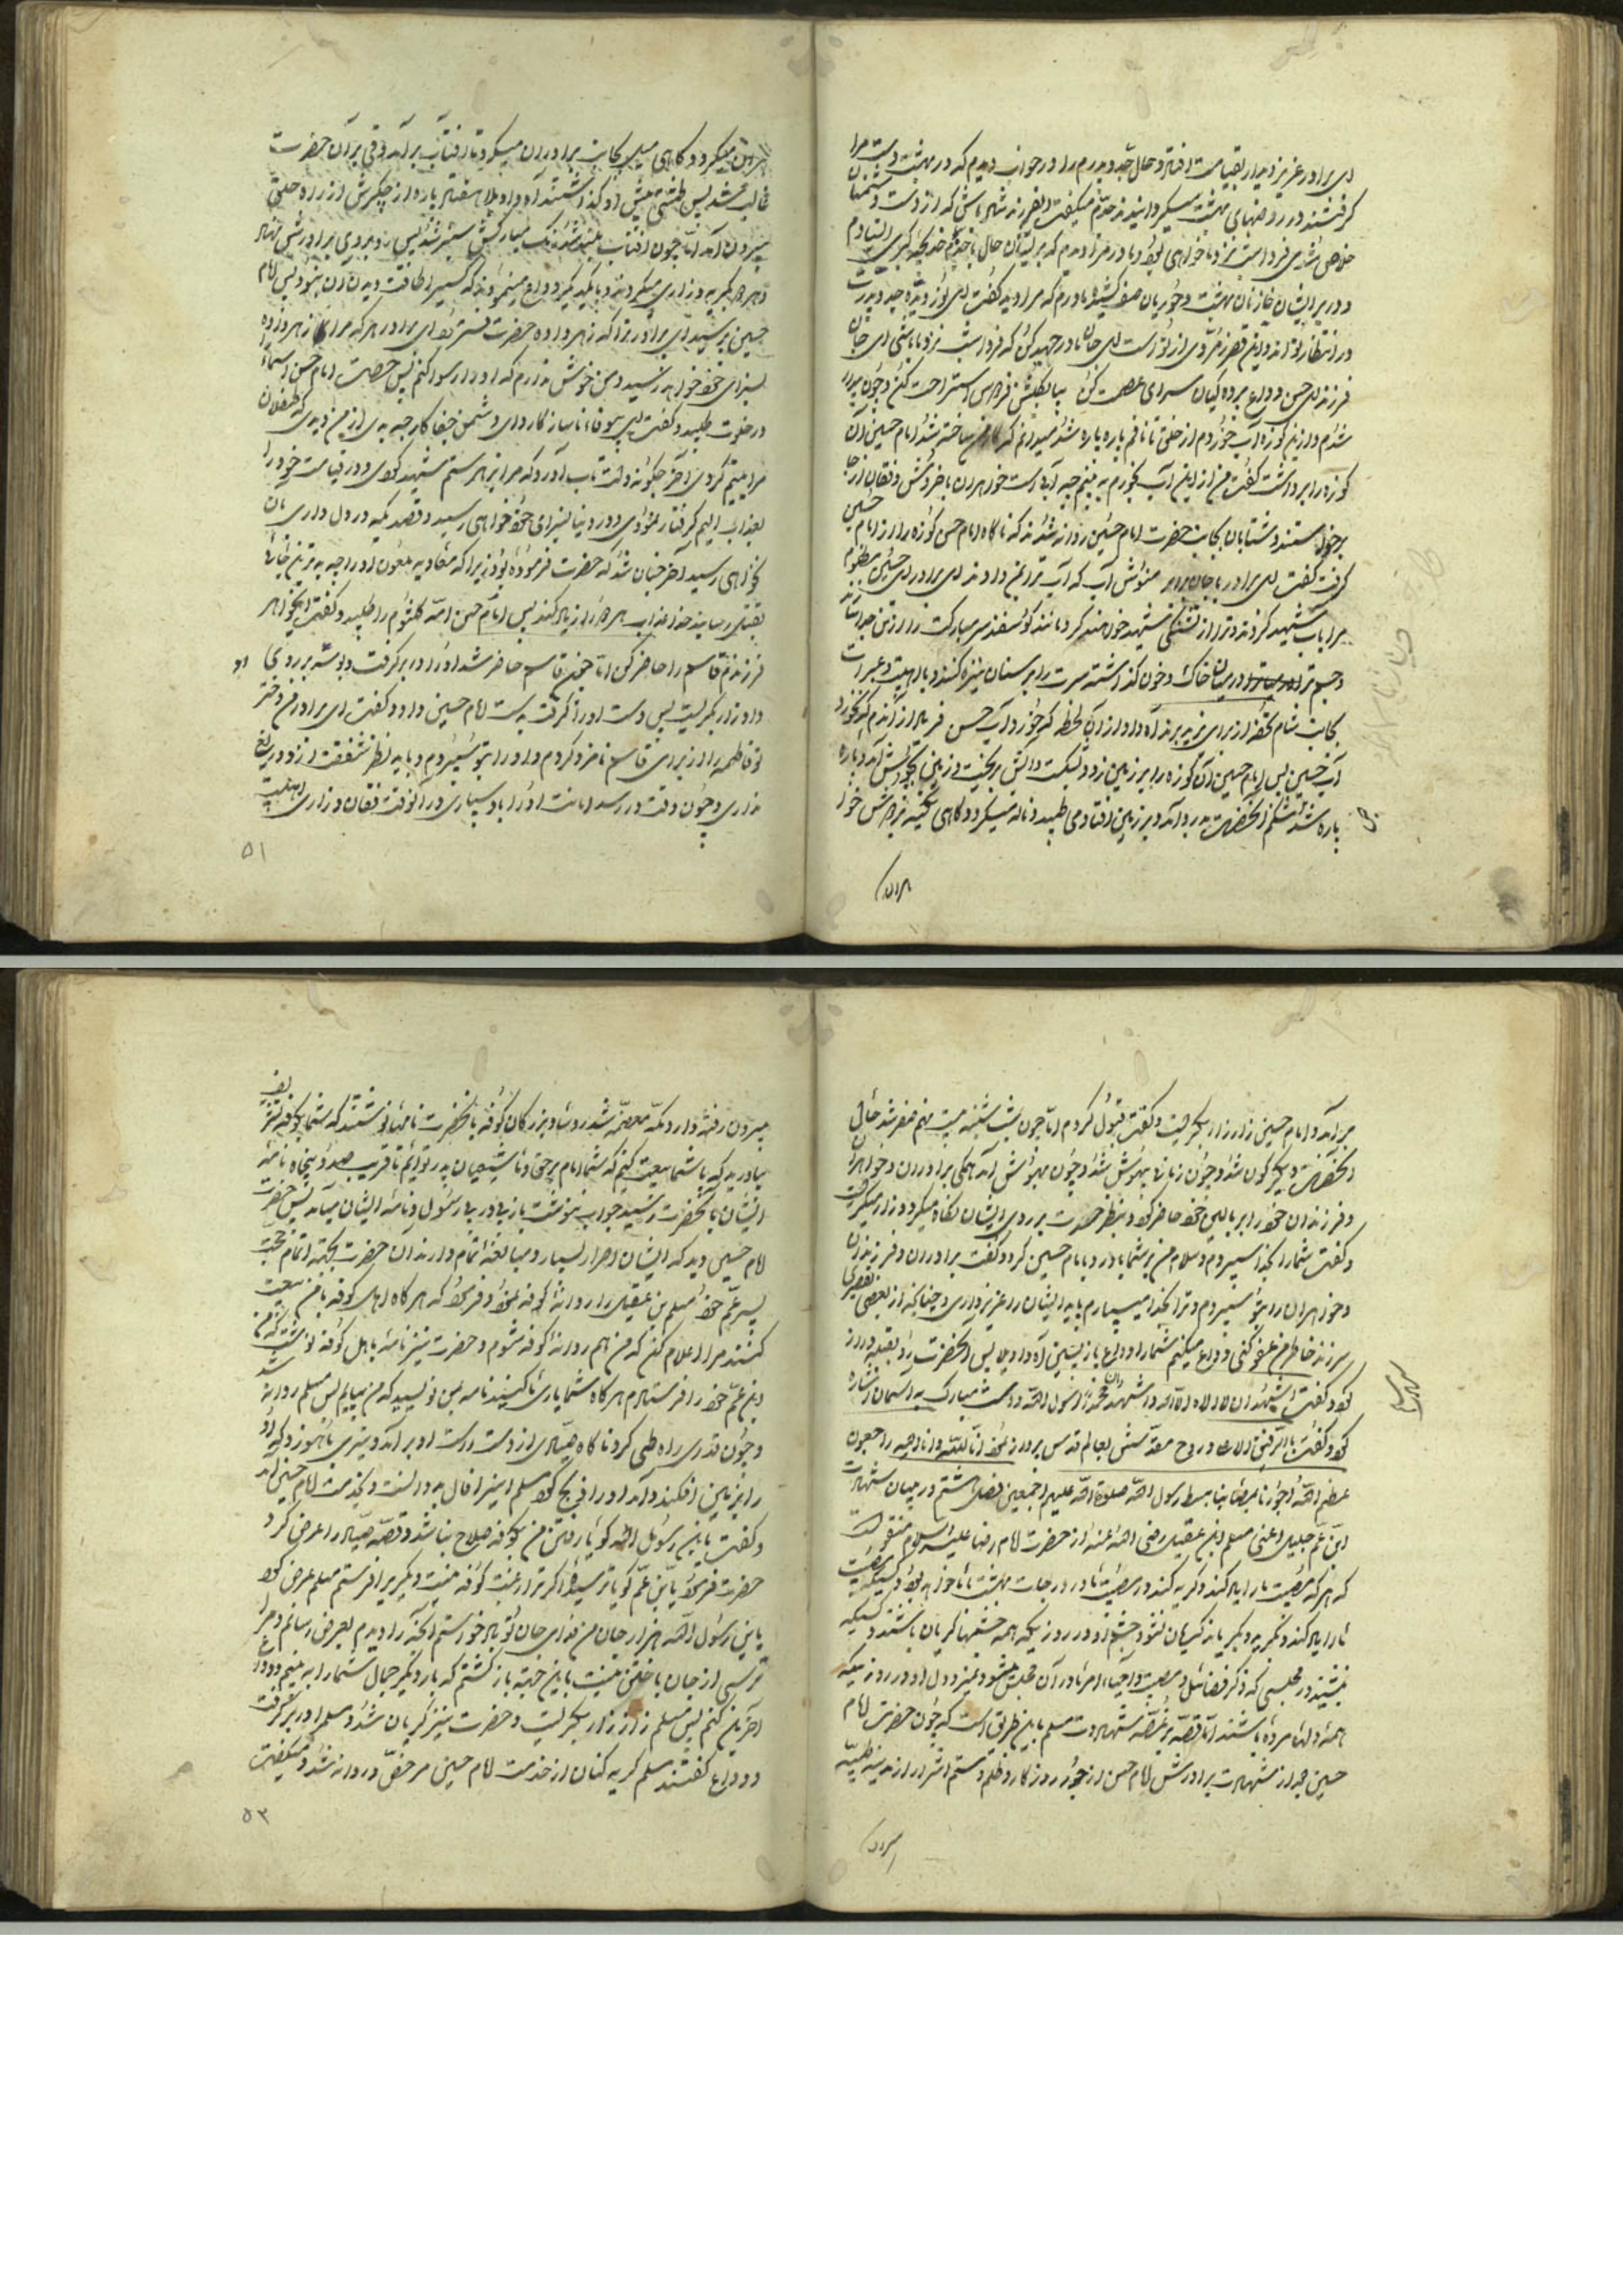 ای برادر عزیز دیدار بقیامت افتاد و حال جد و پدرم را در خواب دیدم که در بهشت دست مرا
گرفتند در روضهای بهشت میگردانیدند جدم میگفت ای فرزند شاد باش که از دست دشمنان
خلاص شدی فردا شب نزد ما خواهی بود و مادر مرا دیدم که
و در برابر ایشان خازنان بهشت و حوریان صف کشیده مادرم که مرا دید گفت ای نور دیده جد و پدرت
در انتظار تواند و این قصر زمردی از تو است ای جان مادر جهد کن که فردا شب نزد ما باشی ای جان
فرزند ای حسن وداع پرده کیان سرای عصمت کن
شدم و از این کوزه آب خوردم از حلق تا نافم پاره پاره شد امام حسین آن
کوزه را برداشت گفت من از این آب بخورم به بینم چه آب است خواهران با خروش و فغان از جا
برخواستند و شتابان بجانب حضرت امام حسین روانه شدند که ناگاه امام حسن کوزه را از امام حسین
گرفت گفت ای برادر با جان برابر منوش آب که آب ترا نمیدادند ای برادر ای حسین مظلوم
مرا بآب شهید کردند و ترا از تشنگی شهید خواهند کرد مانند گوسفند سر مبارکت را از تن جدا
و جسم ترا در میان خاک و خون گذاشته سرت را بر سنان نیزه کنند و با اهلبیت و عبرات
بجانب شام تحفه از برای یزید برند آه و از آن لحظه که خورد آب حسن فریاد از آندم که نخورد
آب حسین پس امام حسین آن کوزه را بر زمین زد و شکست و آبش بریخت و زمین بجوشش آمد و پاره
پاره شد شکم آنحضرت بدرد آمد و بر زمین افتاد و می طپید و ناله میکرد و گاهی تکیه بر فرش خود
میکرد و گاهی میل بجانب برادران میکرد تا آفتاب برآمد و قی بر آن حضرت
غالب شد پس طشتی پیش او گذاشتند آه واویلا هفتاد پاره از جگرش از راه حلق
بیرون آمد اما چون آفتاب بلند شد رنگ مبارکش سبز شد پس رو بروی برادرش نهاد
و هر دو گریه و زاری میکردند و با یکدیگر وداع مینمودند که کسیرا طاقت دیدن آن نبود پس امام
حسین پرسید ای برادر ترا که زهر داده حضرت فرمود ای برادر هر که مرا زهر داده
بسزای خود خواهد رسید و من خوش ندارم که او را رسوا کنم پس حضرت امام حسن اسماء را
در خلوت طلبید و گفت ای بیوفا ناساز کار وای دشمن جفا کار چه بدی از من دیدی که طفلان
مرا یتیم کردی آخر چگونه دلت تاب آورد که مرا بزهر ستم شهید کردی و در قیامت خود را
بعذاب الیم گرفتار نمودی و در دنیا بسزای خود خواهی رسید و قصدیکه در دل داری بآن
نخواهی رسید آخر چنان شد که حضرت فرموده بود زیرا که معاویه ملعون او را
بقتل رسانید خدا عذاب هر دو را زیاد کند پس امام حسن ام کلثوم را طلبید و گفت ایخواهر
فرزندم قاسم را حاضر کن اما چون قاسم حاضر شد او را در بر گرفت و بوسه بر روی او
داد و زار بگریست پس دست او را گرفت بدست امام حسین داد و گفت ای برادر من دختر
تو فاطمه را از برای قاسم نامزد کردم و او را بتو سپردم و باید نظر شفقت از او دریغ
نداری و چون وقت در رسد امانت او را باو سپاری در آنوقت فغان و زاری اهلبیت
۵۱
برآمد و امام حسین زار زار بگریست و گفت قبول کردم اما چون شب شنبه بیست نهم صفر شد حال
آنحضرت دیگرگون شد و چون زمانی بیهوش شد و چون بهوش آمد همگی برادران و خواهران
و فرزندان خود را بر بالین خود حاضر کرد و بنظر حسرت بر روی ایشان نگاه میکرد و زار میگریست
و گفت شما را بخدا سپردم و سلام من بر شما باد و رو بامام حسین کرد و گفت برادران و فرزندان
و خواهران را بتو سپردم و ترا بخدا میسپارم باید ایشان را عزیز داری و چنانچه از بعضی تقصیری
سر زند خاطر من عفو کنی وداع میکنم شما را وداع بازپسین آه واویلا پس آنحضرت رو بقبله دراز
کرد و گفت اشهد ان لا اله الا الله و اشهد ان محمد رسول الله و دست مبارک به آسمان اشاره
کرد و گفت بالرفیق الاعلی و روح مقدسش بعالم قدس پرواز نمود انا لله و انا الیه راجعون
عظم الله اجورنا بمصابنا بسبط رسول الله صلوة الله علیهم اجمعین فصل هشتم در بیان شهادت
ابن عم جلیل اعنی مسلم ابن عقیل رضی الله عنه از حضرت امام رضا علیه السلام منقولست
که هر که مصیبت ما را یاد کند و گریه کند در مصیبت ما در درجات بهشت با ما خواهد بود و کسیکه مصیبت
ما را یاد کند و بگرید و بگریاند گریان نشود چشم او در روزیکه همه چشمها گریان باشند و کسیکه
بنشیند در مجلسی که ذکر فضائل و مصیبت و احیاء امر ما در آن مجلس شود نمیرد دل او در روزیکه
همه دلها مرده باشند اما قصه پر غصه شهادت مسلم باین طریق است که چون حضرت امام
حسین بعد از شهادت برادرش امام حسن از جور روزگار و ظلم و ستم اشرار از مدینه طیبه
بیرون رفته وارد مکه معظمه شد رؤسا و بزرگان کوفه بآنحضرت نامها نوشتند که شما بکوفه تشریف
بیاورید که با شما بیعت کنیم که شما امام برحقی و ما شیعیان پدر توائیم تا قریب صد و پنجاه نامه
ایشان بآنحضرت رسید جواب ننوشت باز پی در پی رسول و نامه ایشان میآمد پس حضرت
امام حسین دید که ایشان اصرار بسیار و مبالغه تمام دارند آن حضرت بجهة اتمام حجت
پسر عم خود مسلم بن عقیل را روانه کوفه نمود و فرمود که هر گاه اهل کوفه با من بیعت
کنند مرا اعلام کن که من هم روانه کوفه شوم و حضرت نیز نامه باهل کوفه نوشت که من
ابن عم خود را فرستادم هر گاه شما یاری ما کنید نامه بمن نویسید که من بیایم پس مسلم روانه شد
و چون قدری راه طی کرد ناگاه صیادی از دست راست او برآمد و تیری بآهو زد و
را بر زمین افکند و آمد او را ذبح کرد مسلم اینرا فال بد دانست و بخدمت امام حسین آمد
و گفت یابن رسول الله گویا رفتن من بکوفه صلاح نباشد و قصه صیاد را عرض کرد
حضرت فرمود یابن عم گویا ترسیدی اگر ترا رغبت کوفه نیست دیگریرا فرستم مسلم عرض کرد
یابن رسول الله هزار جان من فدای جان تو باد خواستم آنچه را دیدم بعرض رسانم و مرا
ترسی از جان باختن نیست باین جهة بازگشتم که بار دیگر جمال شما را به بینم و وداع
آخرین کنم پس مسلم زار زار بگریست و حضرت نیز گریان شد و مسلم را در بر گرفت
و وداع گفتند مسلم گریه کنان از خدمت امام حسین مرخص و روانه شد و میگفت
۵۲